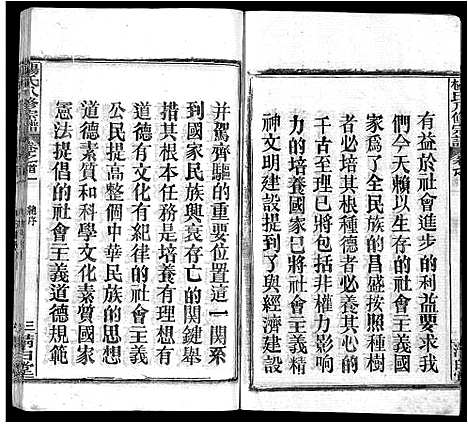 有益於社會進步的利益要求我
們今天賴以生存的社會主義國
家爲了全民族的昌盛按照種樹
者必培其根種德者必養其心的
千古至理已將包括非權力影响
力的培養國家已將社會主義精
神文明建設提到了與經濟建設
并駕齊驅的重要位置這一関系
到國家民族興衰存亡的関鍵舉
措其根本任務是培養有理想有
道德有文化有紀律的社會主義
公民提高整個中華民族的思想
道德素質和科學文化素質國家
憲法提倡的社會主義道德規範
楊氏八修宗譜